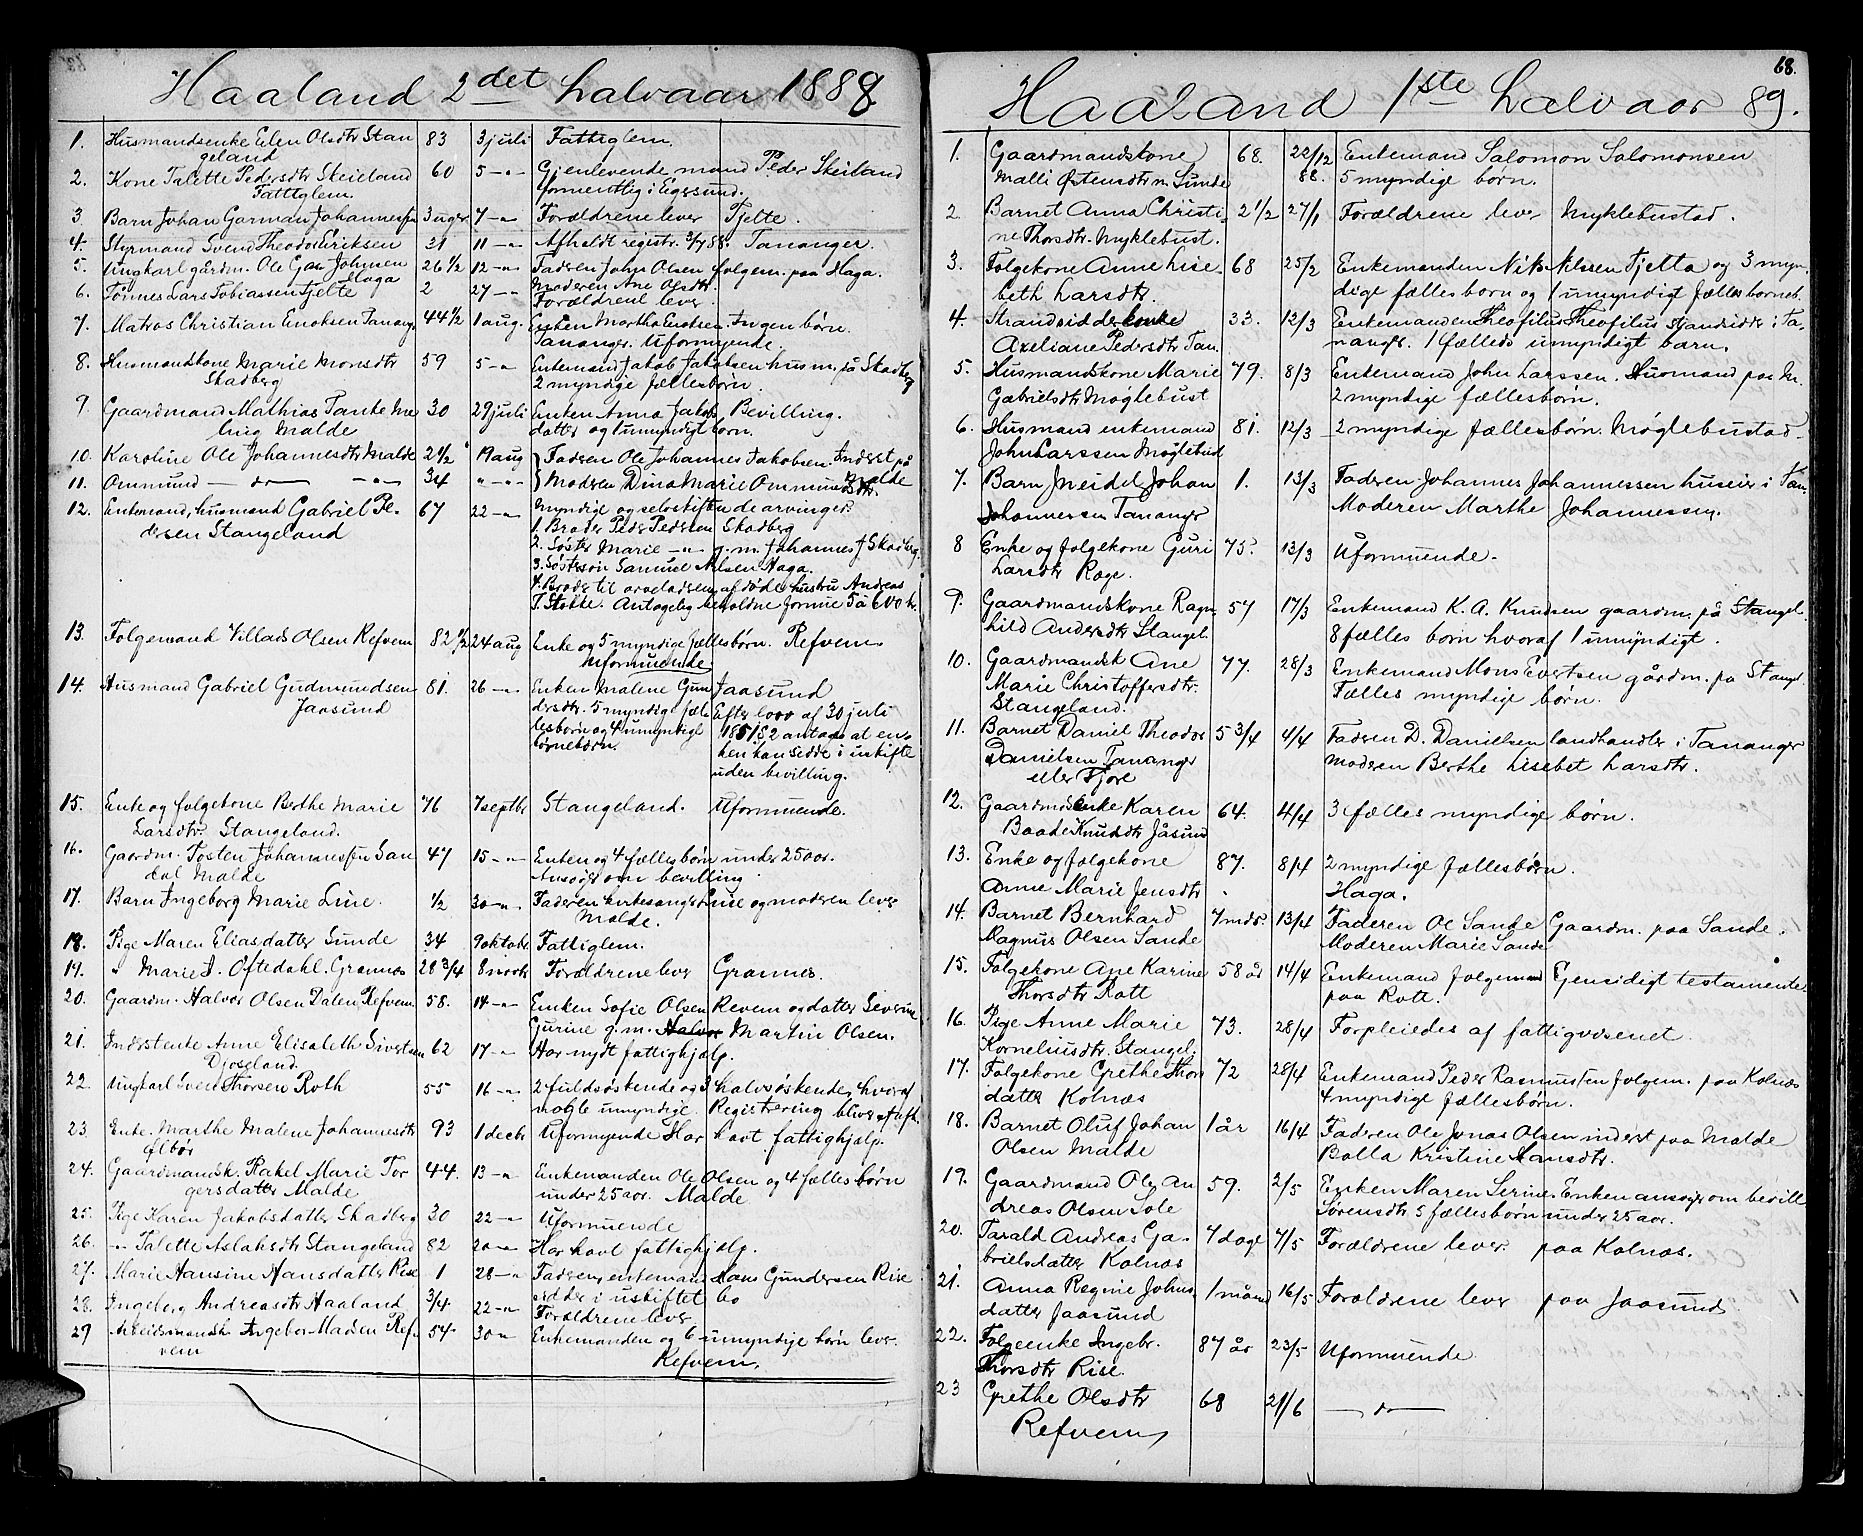 Haaland 2det halvaar 1888
1. Husmandsenke Elen Olsdtr Stan 83 3 juli Fattiglem.
geland
2. Kone Talette Pedersdtr Skeiland 60 5 -"- Gjenlevende mand Peder Skeiland
Fattiglem. formentlig i Egersund.
3 Barn Johan Garman Johannessen 3 uger 7 -"- Forældrene lever Tjelte.
4. Styrmand Svend Theodor Eriksen 21 11 -"- Afholdt registr. 3/7 88. Tananger.
5. Ungkarl gårdm. Ole Johnsen 26 1/2 12 -"- Faderen John Olsen folgem. paa Haga.
Haga Moderen Ane Olsdtr.
6. Tønnes Lars Tobiassen Tjelte 2 27 -"- Forældrene lever.
7. Matros Christian Enoksen Tanang. 44 1/2 1 aug. Enken Martha Enoksen. Ingen børn.
Tananger. Uformuende.
8. Husmandskone Marie Monsdtr 59 5 -"- Enkemand Jakob Jakobsen husm. på Skadberg
Skadberg 2 myndige fællesbørn.
9. Gaardmand Mathias Tanke Me 30 29 juli Enken Anna Jakobs Bevilling.
ling Malde datter og 1 umyndigt barn.
10. Karoline Ole Johannesdtr Malde 2 1/2 19 aug Faderen Ole Johannes Jakobsen. Inderst på
11. Ommund -"- do -"- 3/4 "-"- Moderen Dina Marie Ommundsdtr. Malde
12. Enkemand, husmand Gabriel Pe- 67 22 -"- Myndige og selvskiftende arvinger.
dersen Stangeland 1. Broder Peder Pedersen Skadberg
2. Søster Marie -"- g.m. Johannes J Skadberg.
3. Søsterson Samuel Nilsen Haga.
4. Broder til arveladeren afdøde hustru Andreas
J. Stokke. Antagelig beholdne formue 5 à 600 kr.
13. Folgemand Villads Olsen Refvem 82 1/2 24 aug Enke og 5 myndige fællesbørn. Refvem
Uformuende
14. Husmand Gabriel Gudmundsen 81. 26 -"- Enken Malene Gun Jaasund
Jaasund dersdtr. 5 myndige fæl Efter lov af 30 juli
lesbørn og 4 umyndige 1851 § 2 antages at en
børnebørn. ken kan sidde i uskifte
uden bevilling.
15. Enke og folgekone Berthe Marie 76 7 septbr Stangeland. Uformuende.
Larsdtr. Stangeland.
16. Gaardm. Tosten Johannessen San 47 15 -"- Enken og 4 fælles børn under 25 aar.
dal Malde Ansøger om bevilling.
17. Barn Ingeborg Marie Line. 1/2 30 -"- Faderen kirkesanger Line og moderen lever
Malde.
18. Pige Maren Eliasdatter Sunde 34 9 oktobr Fattiglem.
19. " Marie J. Oftedahl. Grannes 28 3/4 8 novbr Forældrene lever Grannes.
20. Gaardm. Halvor Olsen Dalen Refvem. 58. 14 -"- Enken Sofie Olsen Revem og datter Severine
Gurine g.m. Halvor Martin Olsen.
21. Inderstenke Anne Elisabeth Sivertsen 62 17 -"- Har nydt fattighjælp.
Djoseland.
22 Ungkarl Svend Thorsen Roth 55 16 -"- 2 fuldsøskende og 3 halvsøskende, hvoraf
nogle umyndige. Registrering bliver afh.
23. Enke. Marthe Malene Johannesdtr 93 1 decbr Uformuende Har havt fattighjælp.
24. Gaardmandsk. Rakel Marie Tor 44. 13 -"- Enkemanden Ole Olsen og 4 fælles børn
gersdatter Malde under 25 aar. Malde
25. Pige Karen Jakobsdatter Skadberg 30 22 -"- Uformuende
26. -"- Talette Aslaksdtr Stangeland 82 20 -"- Har havt fattighjælp.
27. Marie Hansine Hansdatter Rise 1 28 -"- Faderen, enkemand Hans Gundersen Rise
sidder i uskiftet bo
28. Ingeborg Andreasdtr Haaland 3/4. 22 -"- Forældrene lever
29 Arbeidsmandsk. Ingebor Maden Ref- 54 30 " Enkemanden og 6 umyndige børn lever.
vem Refvem.
68.
Haaland 1ste halvaar 89.
1. Gaardmandskone 68. 22/12 Enkemand Salomon Salomonsen
Malli Østensdtr Sunde 88. 5 myndige børn.
2. Barnet Anna Christi- 2 1/2 27/1 Forældrene lever Myklebustad.
ne Thorsdtr. Myklebust.
3. Folgekone Anne Lise- 68 25/2 Enkemanden Nils Nilssen Tjelta og 3 myn-
beth Larsdtr. dige fællesborn og 1 umyndigt fælles barneb.
4. Strandsidderenke 33. 12/3 Enkemanden Theofilus Theofilus Standsidr. i Ta-
Axeliane Pedersdtr Tan. nanger. 1 fælleds umyndigt barn.
5. Husmandskone Marie 79. 8/3 Enkemand John Larssen. Husmand paa M.
Gabrielsdtr Møglebust 2 myndige fællesbørn.
6. Husmand enkemand 81. 12/3 2 myndige fællesbørn. Møglebustad
John Larssen Møglebust
7. Barn Johan 1. 13/3 Faderen Johannes Johannessen huseier i Tan.
Johannessen Tananger Moderen Marthe Johannessen.
8 Enke og folgekone Guri 75. 13/3 Uformuende.
Larsdtr Røge.
9. Gaardmandskone Ragn 57 17/3 Enkemand K. A. Knudsen gaardm. på Stangel.
hild Andersdtr Stangel. 8 fælles born hvoraf 1 umyndigt.
10. Gaardmandsk Ane 77. 28/3 Enkemand Mons Evertsen gårdm. pa Stangel.
Marie Christoffersdtr. Fælles myndige børn.
Stangeland.
11. Barnet Daniel Theodor 5 3/4 4/4 Faderen D. Danielsen landhandler i Tananger
Danielsen Tananger Moderen Berthe Lisebet Larsdtr.
eller Fjore
12. Gaardmdsenke Karen 64. 4/4 3 fælles myndige børn.
Baade Knudsdtr Jåsund
13. Enke og folgekone 87. 8/4 2 myndige fællesbørn.
Anne Marie Jensdtr Haga.
14. Barnet Bernhard 7 mdr. 13/4 Faderen Ol Sande Gaardm. paa Sande.
Magnus Olsen Sande Moderen Marie Sande
15. Folgekone Ane Karine 58 år 14/4 Enkemand folgemand Gensidigt testamente
Thorsdtr Rott paa Rott.
16. Pige Anne Marie 73. 28/4 Forpleiedes af fattigvæsenet.
Korneliusdtr. Stangel.
17. Folgekone Grethe Thors 72 28/4 Enkemand Peder Rasmussen folgem. paa Kolnæs
datter Kolnæs 4 myndige fællesbørn.
18. Barnet Oluf Johan 1 år 16/4 Faderen Ole Jonas Olsen inderst paa Malde
Olsen Malde Bolla Kristine Hansdtr.
19. Gaardmand Ole An 59. 2/5 Enken Maren Serine. Enken ansøger om bevill
dreas Olsen Sole Sørensdtr 5 fællesbørn under 25 aar.
20. Tarald Andreas Ga- 7 dage 7/5 Forældrene lever. paa Kolnæs.
brielsdatter Kolnæs
21. Anna Regine Johns 1 måned 16/5 Forældrene lever paa Jaasund
datter Jaasund
22. Folgeenke Ingebr. 87 år 23/5 Uformuende
Thorsdtr Rise.
23 Grethe Olsdtr 68 21/6 -"- do -"-
Refvem